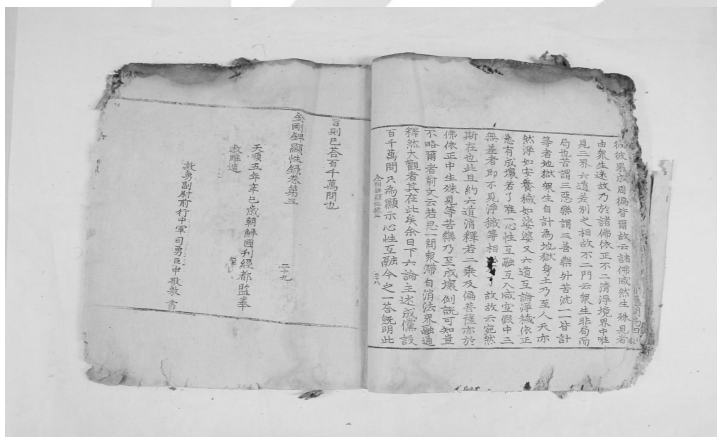 彼果成周徧皆爾故云諸佛咸然生殊見者
由衆生迷故力於諸佛依正不二清淨境界中唯
見三界六道差別之相故不二門云衆生非局而
局也苦謂三惡樂謂三善樂外苦況一一皆計
等者地獄衆生自計為地獄身土乃至人天亦
然淨如安養穢如娑婆又六道互論淨穢依正
悉有成壞若了唯一心性互融互入咸空假中三
無差者即不見淨穢等相故故云宛然
斯在也此且約六道消釋若二乘及偏菩薩亦於
佛依正中生殊見等苦樂乃至成壞倒說可知豈
不略爾者前文云若思一問衆滯自消法界融通
釋然大觀者其在此矣余曰下六論主述成儻設
百千萬問只為顯示心性互融今之一荅既明此
旨則已荅百千萬問也
金剛錍顯性錄卷第三
二十九
天順五年辛巳歲朝鮮國刊經都監奉
敎雕造
副尉前行中軍司勇臣申敬 書